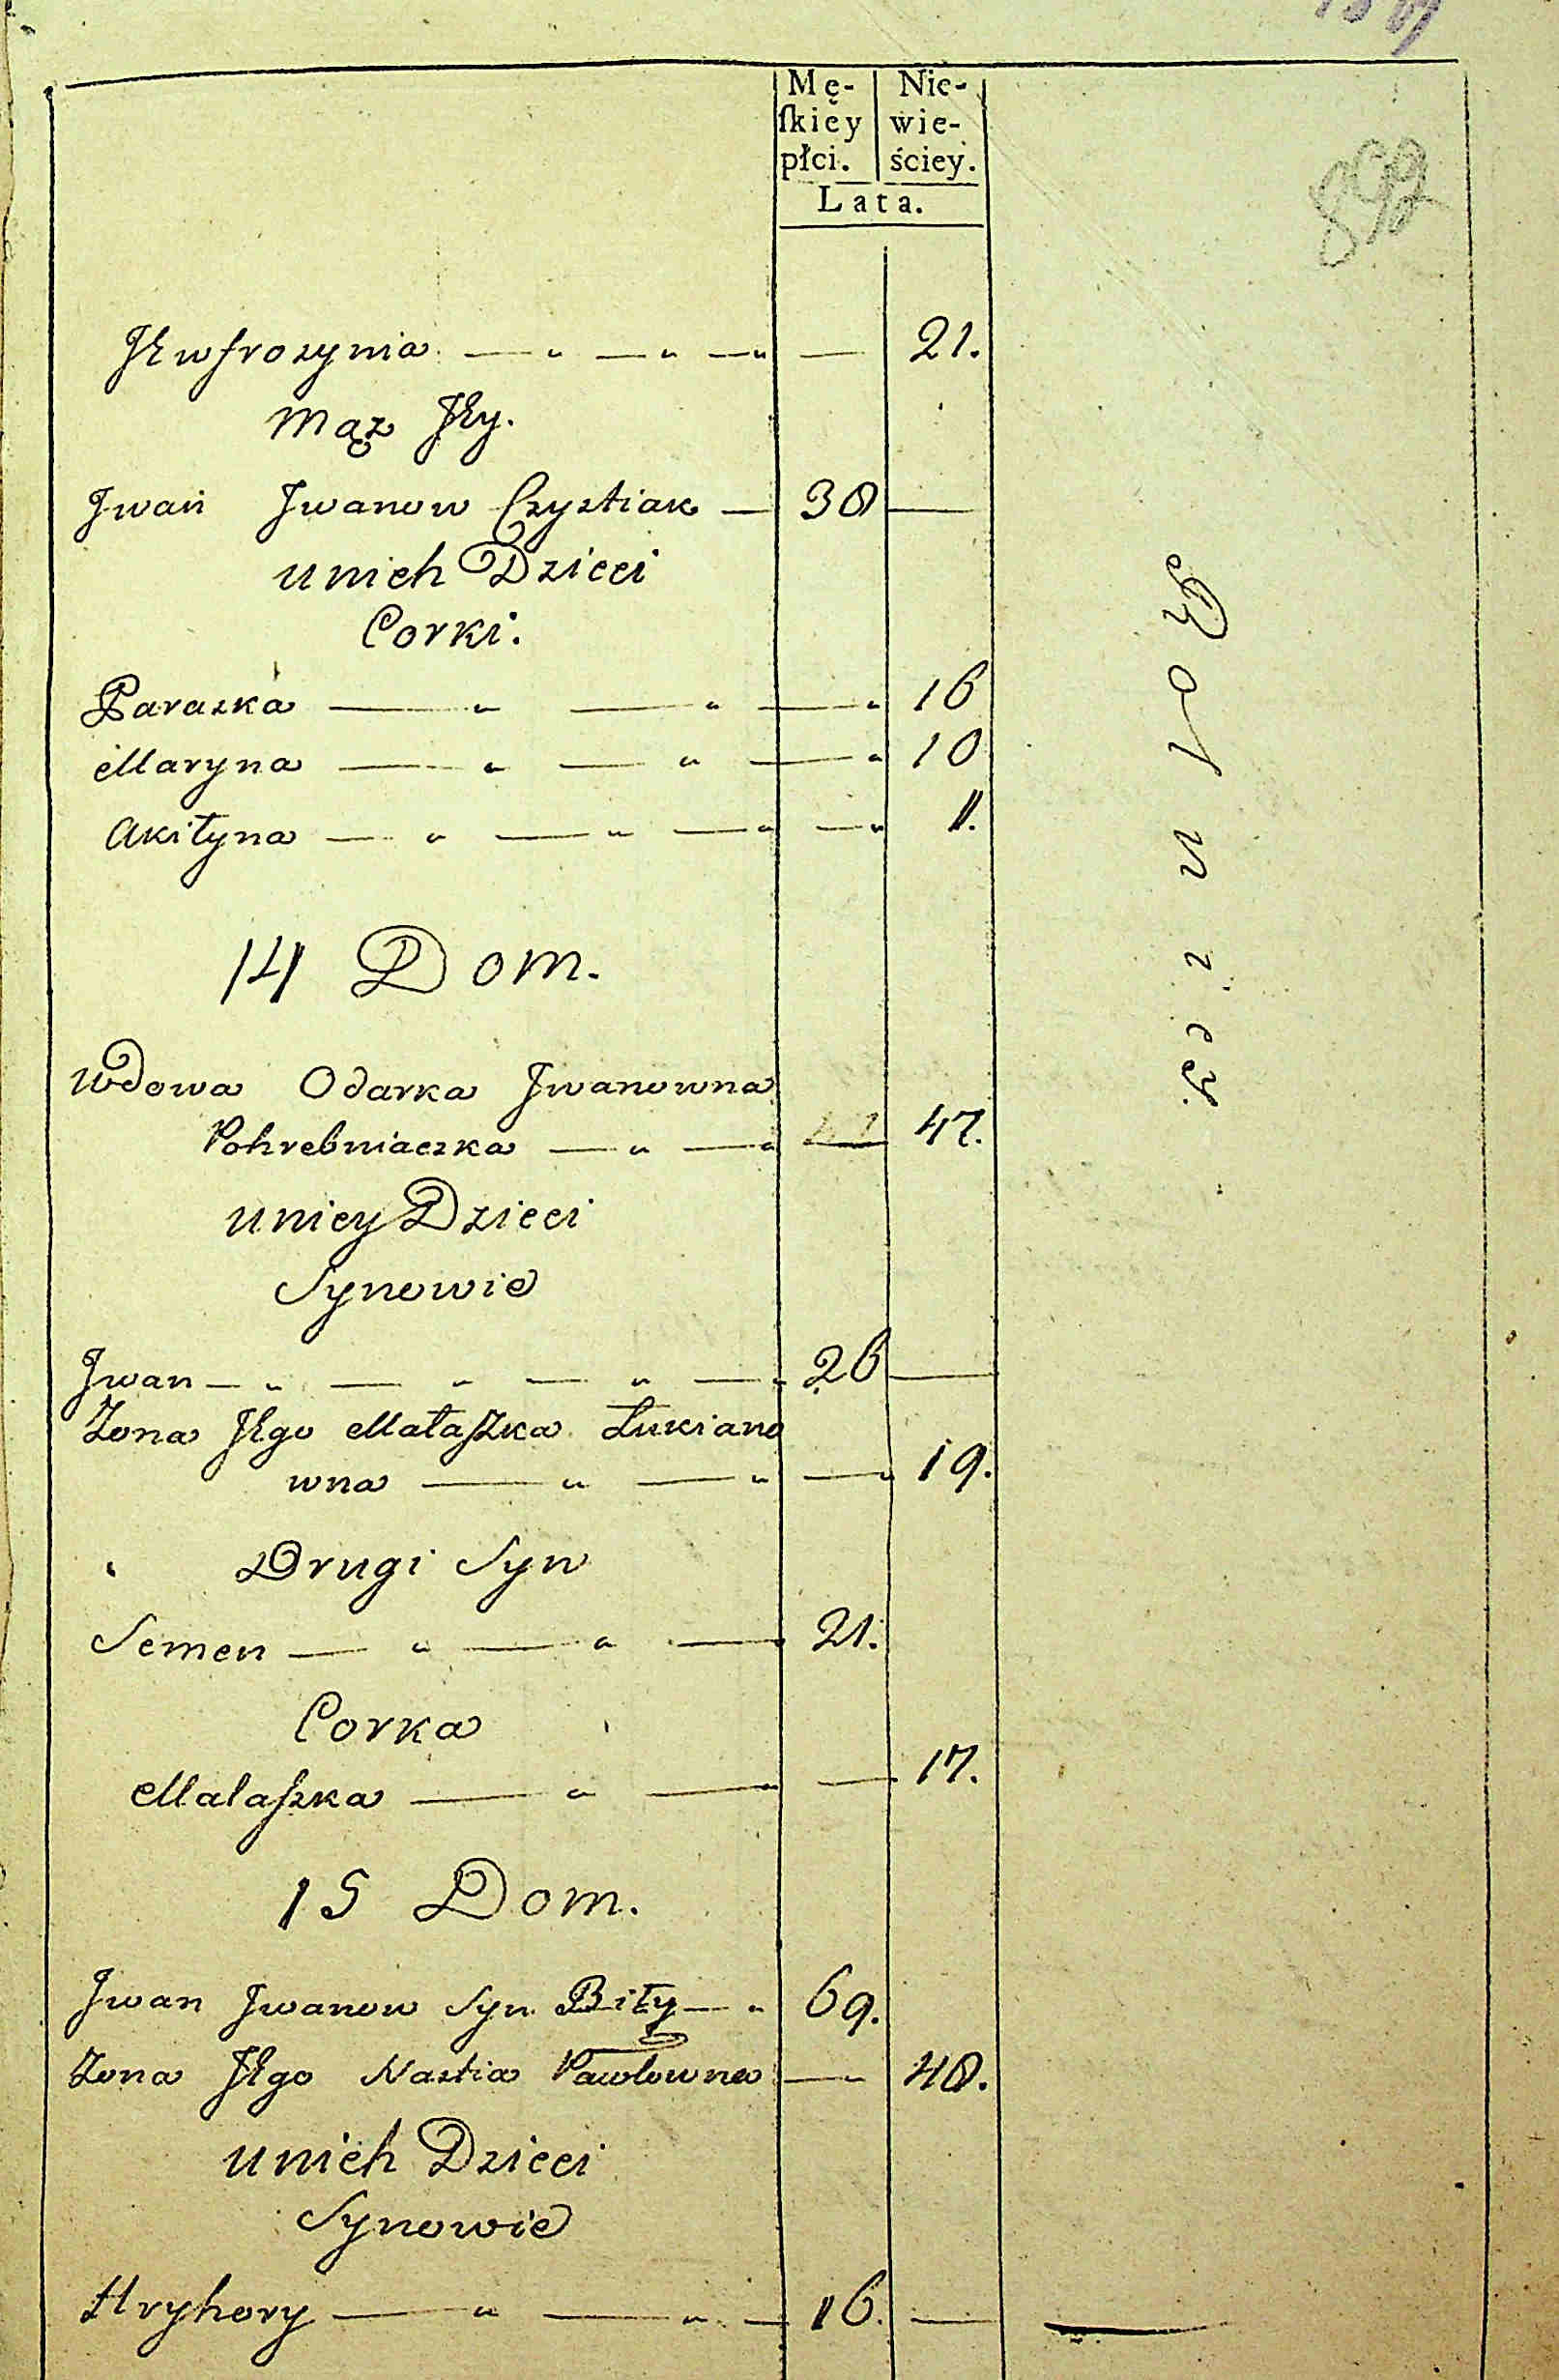 Mę- Nie-
ſkiey wie-
płci. ściey.
Lata.
892
Jewfrozynia — „ — „ — „ — 21.
Mąz Jey.
Jwan Jwanow Czyztiak — 38 —
u nich Dzieci
Corki.
Parazka — „ — „ — „ 16
Maryna — „ — „ — „ 10
Akiłyna — „ — „ — „ — „ 1.
14 Dom.
Wdowa Odarka Jwanowna
Pohrebniaczka — „ — „ — 47.
u niey Dzieci
Synowie
Jwan — „ — „ — „ — „ 26 —
Zona Jego Małaſzka Łukiano
wna — „ — „ — „ 19.
Drugi Syn
Semen — „ — „ — 21.
Corka
Malaſzka — „ — „ — 17.
15 Dom.
Jwan Jwanow Syn Biły — „ 69.
Zona Jego Nastia Pawłowna — 48.
u nich Dzieci
Synowie
Hryhory — „ — „ — 16. —